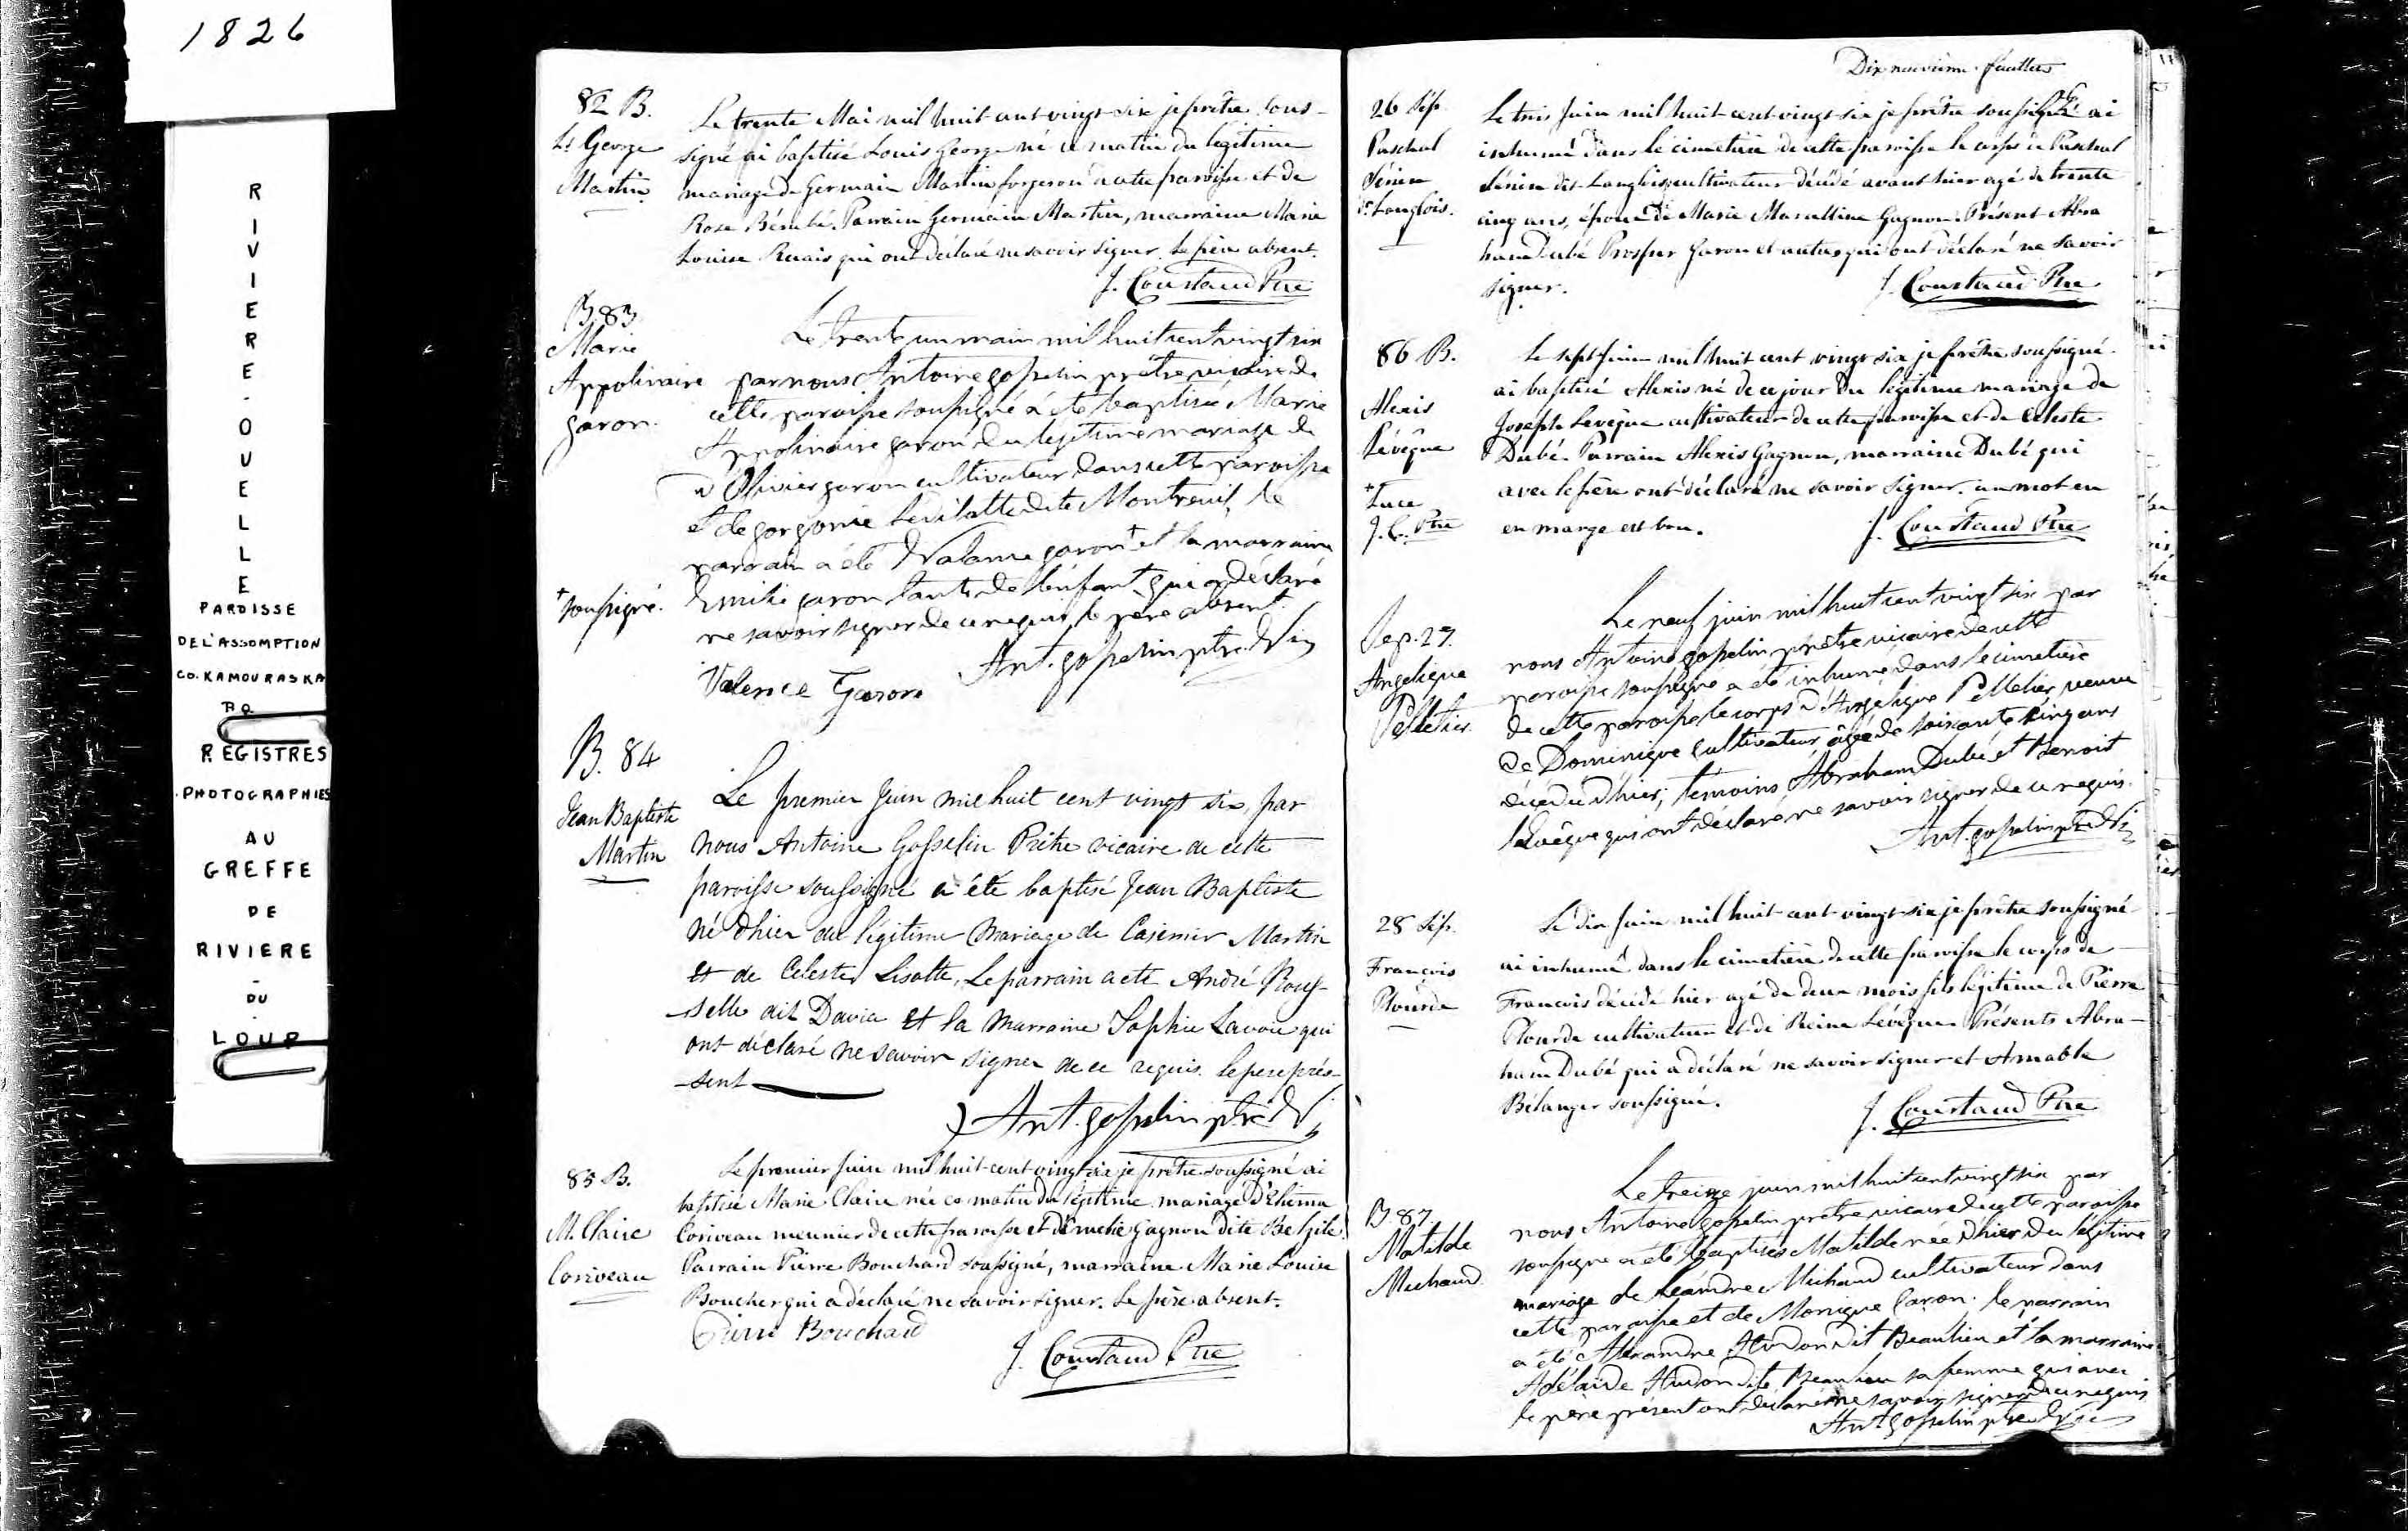 1826
RIVIERE-OUELLE
PAROISSE
DE L'ASSOMPTION
CO. KAMOURASKA
P.Q.
REGISTRES
PHOTOGRAPHIES
AU
GREFFE
DE
RIVIERE
-
DU
-
LOUP
82 B.
Ls George
Martin
Le trente Mai mil huit cent vingt six je prêtre sous-
signé ai baptisé Louis George né ce matin du légitime
mariage de Germain Martin forgeron de cette paroisse et de
Rose Bérubé. Parrain Germain Martin, marraine Marie
Louise qui ont déclaré ne savoir signer. Le père absent.
J. Courtaud Ptre
B. 83
Marie
Appolinaire
garon.
Le trente un main mil huit cent vingt six
par nous Antoine gosselin prêtre vicaire de
cette paroisse soussigné a été baptisée Marie
Appolinaire garon du legitime mariage de
d'Olivier garon cultivateur dans cette paroisse
et de gorgonie dite Montreuil, le
parrain a été garon + et la marraine
+ soussigné.
Emilie garon tante de l'enfant qui a déclaré
ne savoir signer de ce requis, le père absent.
Valence Garon
Ant. gosselin ptre. Vic
B. 84
Jean Baptiste
Martin
Le premier Juin mil huit cent vingt six, par
nous Antoine Gosselin Prêtre vicaire de cette
paroisse soussigné a été baptisé Jean Baptiste
né d'hier du légitime Mariage de Casemir Martin
et de Celeste Lisotte, Le parrain a ete André Rous-
-selle dit Davia et la Marraine Sophie Lavoie qui
ont déclaré ne savoir signer de ce requis. le pere pré-
-sent
Ant. gosselin ptre Vic
85 B.
M. Claire
Coriveau
Le premier Juin mil huit cent vingt six je prêtre soussigné ai
baptisé Marie Claire née ce matin du légitime mariage d'Etienne
Coriveau meunier de cette paroisse et d' Gagnon dite Belzile.
Parrain Pierre Bouchard soussigné, marraine Marie Louise
Boucher qui a déclaré ne savoir signer. Le père absent.
Pierre Bouchard
J. Courtaud Ptre
Dix neuvieme feuillet
26 Sép.
Paschal
Sénien
dt Langlois.
Le trois Juin mil huit cent vingt six je prêtre soussigné ai
inhumé dans le cimetière de cette paroisse le corps de Paschal
Sénien dit Langlois cultivateur décédé avant hier agé de trente
cinq ans, époux de Marie Marcelline Gagnon. Présent Abra
ham Dubé Prosper Garon et autres qui ont déclaré ne savoir
signer.
J. Courtaud Ptre
86 B.
Alexis
Lévêque
+ Luce
J. C. Ptre
Le sept Juin mil huit cent vingt six je prêtre soussigné
ai baptisé Alexis né de ce jour du légitime mariage de
Joseph Levêque cultivateur de cette paroisse et de Celeste
Dubé. Parrain Alexis Gagnon, marraine Dubé qui
avec le père ont déclaré ne savoir signer. un mot en
en marge est bon.
J. Courtaud Ptre
Sep. 27.
Angelique
Pelletier.
Le neuf juin mil huit cent vingt six par
nous Antoine gosselin prêtre vicaire de cette
paroisse soussigné a été inhumé dans le cimetière
de cette paroisse le corps d'Angélique Pelletier veuve
de Dominique cultivateur âgée de soixante cinq ans
décédée d'hier; témoins Abraham Dubé et Benoit
levêque qui ont déclaré ne savoir signer de ce requis.
Ant. gosselin ptre Vic
28 Sép.
François
Plourde
Le dix Juin mil huit cent vingt six je prêtre soussigné
ai inhumé dans le cimetière de cette paroisse le corps de
François décédé hier agé de deux mois fils légitime de Pierre
Plourde cultivateur et de Reine Levêque. Présents Abra-
ham Dubé qui a déclaré ne savoir signer et Amable
Bélanger soussigné.
J. Courtaud Ptre
B 87
Matilde
Michaud
Le treize juin mil huit cent vingt six par
nous Antoine gosselin prêtre vicaire de cette paroisse
soussigné a été baptisée Matilde née d'hier du légitime
mariage de Léandre Michaud cultivateur dans
cette paroisse et de Monique Caron. le parrain
a été Alexandre Hudon dit Beaulieu et la marraine
Adélaïde Hudon dite Beaulieu sa femme qui avec
le père présent ont déclaré ne savoir signer de ce requis
Ant gosselin ptre Vic